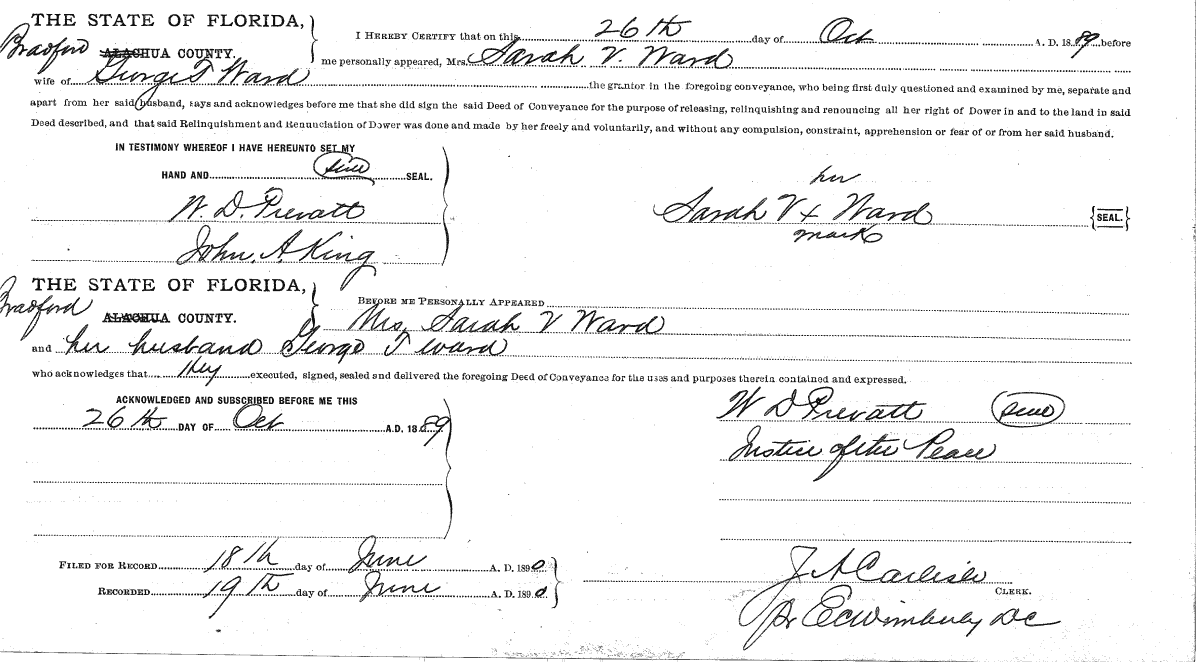 THE STATE OF FLORIDA,
Bradford ALACHUA COUNTY.
I HEREBY CERTIFY that on this 26th day of Oct A. D. 1889 before
me personally appeared, Mrs. Sarah V. Ward
wife of George T Ward the grantor in the foregoing conveyance, who being first duly questioned and examined by me, separate and
apart from her said husband, says and acknowledges before me that she did sign the said Deed of Conveyance for the purpose of releasing, relinquishing and renouncing all her right of Dower in and to the land in said
Deed described, and that said Relinquishment and Renunciation of Dower was done and made by her freely and voluntarily, and without any compulsion, constraint, apprehension or fear of or from her said husband.
IN TESTIMONY WHEREOF I HAVE HEREUNTO SET MY
HAND AND SEAL.
W. D. Prevatt
John. A King
her
Sarah V x Ward {SEAL.}
mark
THE STATE OF FLORIDA,
Bradford ALACHUA COUNTY.
BEFORE ME PERSONALLY APPEARED
Mrs. Sarah V Ward
and her husband George T Ward
who acknowledges that they executed, signed, sealed and delivered the foregoing Deed of Conveyance for the uses and purposes therein contained and expressed.
ACKNOWLEDGED AND SUBSCRIBED BEFORE ME THIS
26th DAY OF Oct A.D. 1889
W D Prevatt
Justice of the Peace
FILED FOR RECORD 18th day of June A. D. 1890
RECORDED 19th day of June A. D. 1890
J A Carlisle
CLERK.
pr E C Wimberly DC